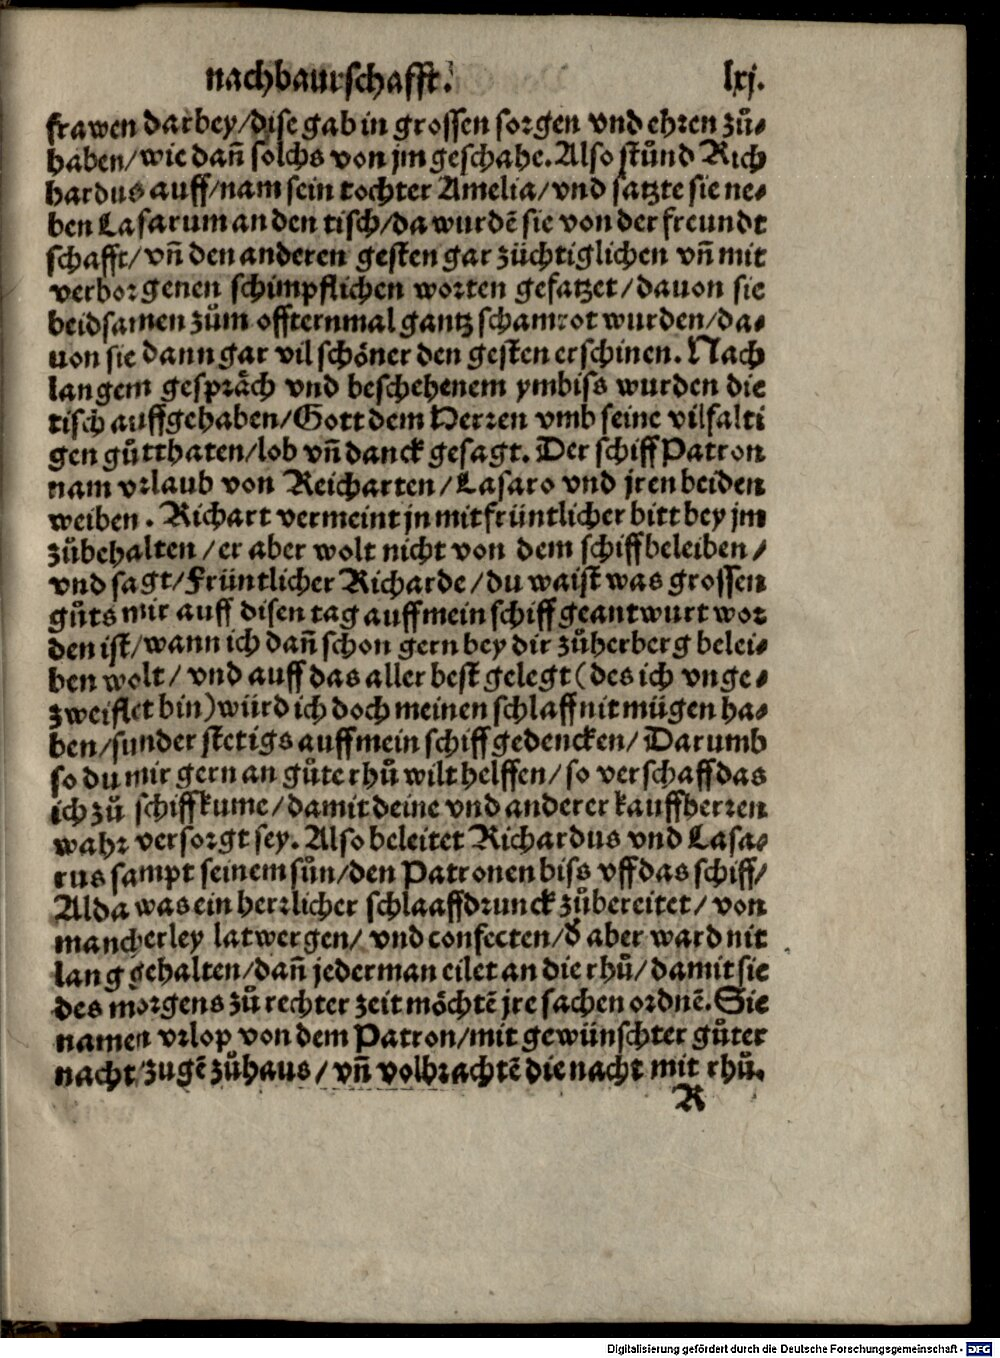 nachbaurschafft. lxj.
frawen darbey/dise gab in grossen sorgen vnd ehren zů⸗
haben/wie dañ solchs von jm geschahe. Also stůnd Rich
hardus auff/nam sein tochter Amelia/vnd satzte sie ne⸗
ben Lasarum an den tisch/da wurdē sie von der freundt
schafft/vñ den anderen gesten gar züchtiglichen vñ mit
verborgenen schimpflichen worten gefatzet/dauon sie
beidsamen zům offternmal gantz schamrot wurden/da⸗
uon sie dann gar vil schöner den gesten erschinen. Nach
langem gespräch vnd beschehenem ymbiss wurden die
tisch auffgehaben/Gott dem Herren vmb seine vilfalti
gen gůtthaten/lob vñ danck gesagt. Der schiff Patron
nam vrlaub von Reicharten/Lasaro vnd jren beiden
weiben. Richart vermeint jn mit früntlicher bitt bey jm
zůbehalten/er aber wolt nicht von dem schiff beleiben/
vnd sagt/Früntlicher Richarde/du waist was grossen
gůts mir auff disen tag auff mein schiff geantwurt wor
den ist/wann ich dañ schon gern bey dir zůherberg belei⸗
ben wolt/vnd auff das aller best gelegt (des ich vnge⸗
zweiflet bin) würd ich doch meinen schlaff nit mügen ha⸗
ben/sunder stetigs auff mein schiff gedencken/Darumb
so du mir gern an gůte rhů wilt helffen/so verschaff das
ich zů schiff kume/damit deine vnd anderer kauffherren
wahr versorgt sey. Also beleitet Richardus vnd Lasa⸗
rus sampt seinem sůn/den Patronen biss vff das schiff/
Alda was ein herrlicher schlaaffdrunck zůbereitet/von
mancherley latwergen/vnd confecten/d̕ aber ward nit
lang gehalten/dañ jederman eilet an die rhů/damit sie
des morgens zů rechter zeit möchtē jre sachen ordnē. Sie
namen vrlop von dem Patron/mit gewünschter gůter
nacht/zugē zůhaus/vñ volbrachtē die nacht mit rhů.
R
Digitalisierung gefördert durch die Deutsche Forschungsgemeinschaft - DFG